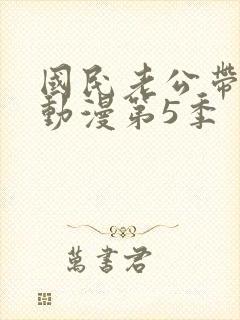 國民老公帶
動漫第5季
萬書君